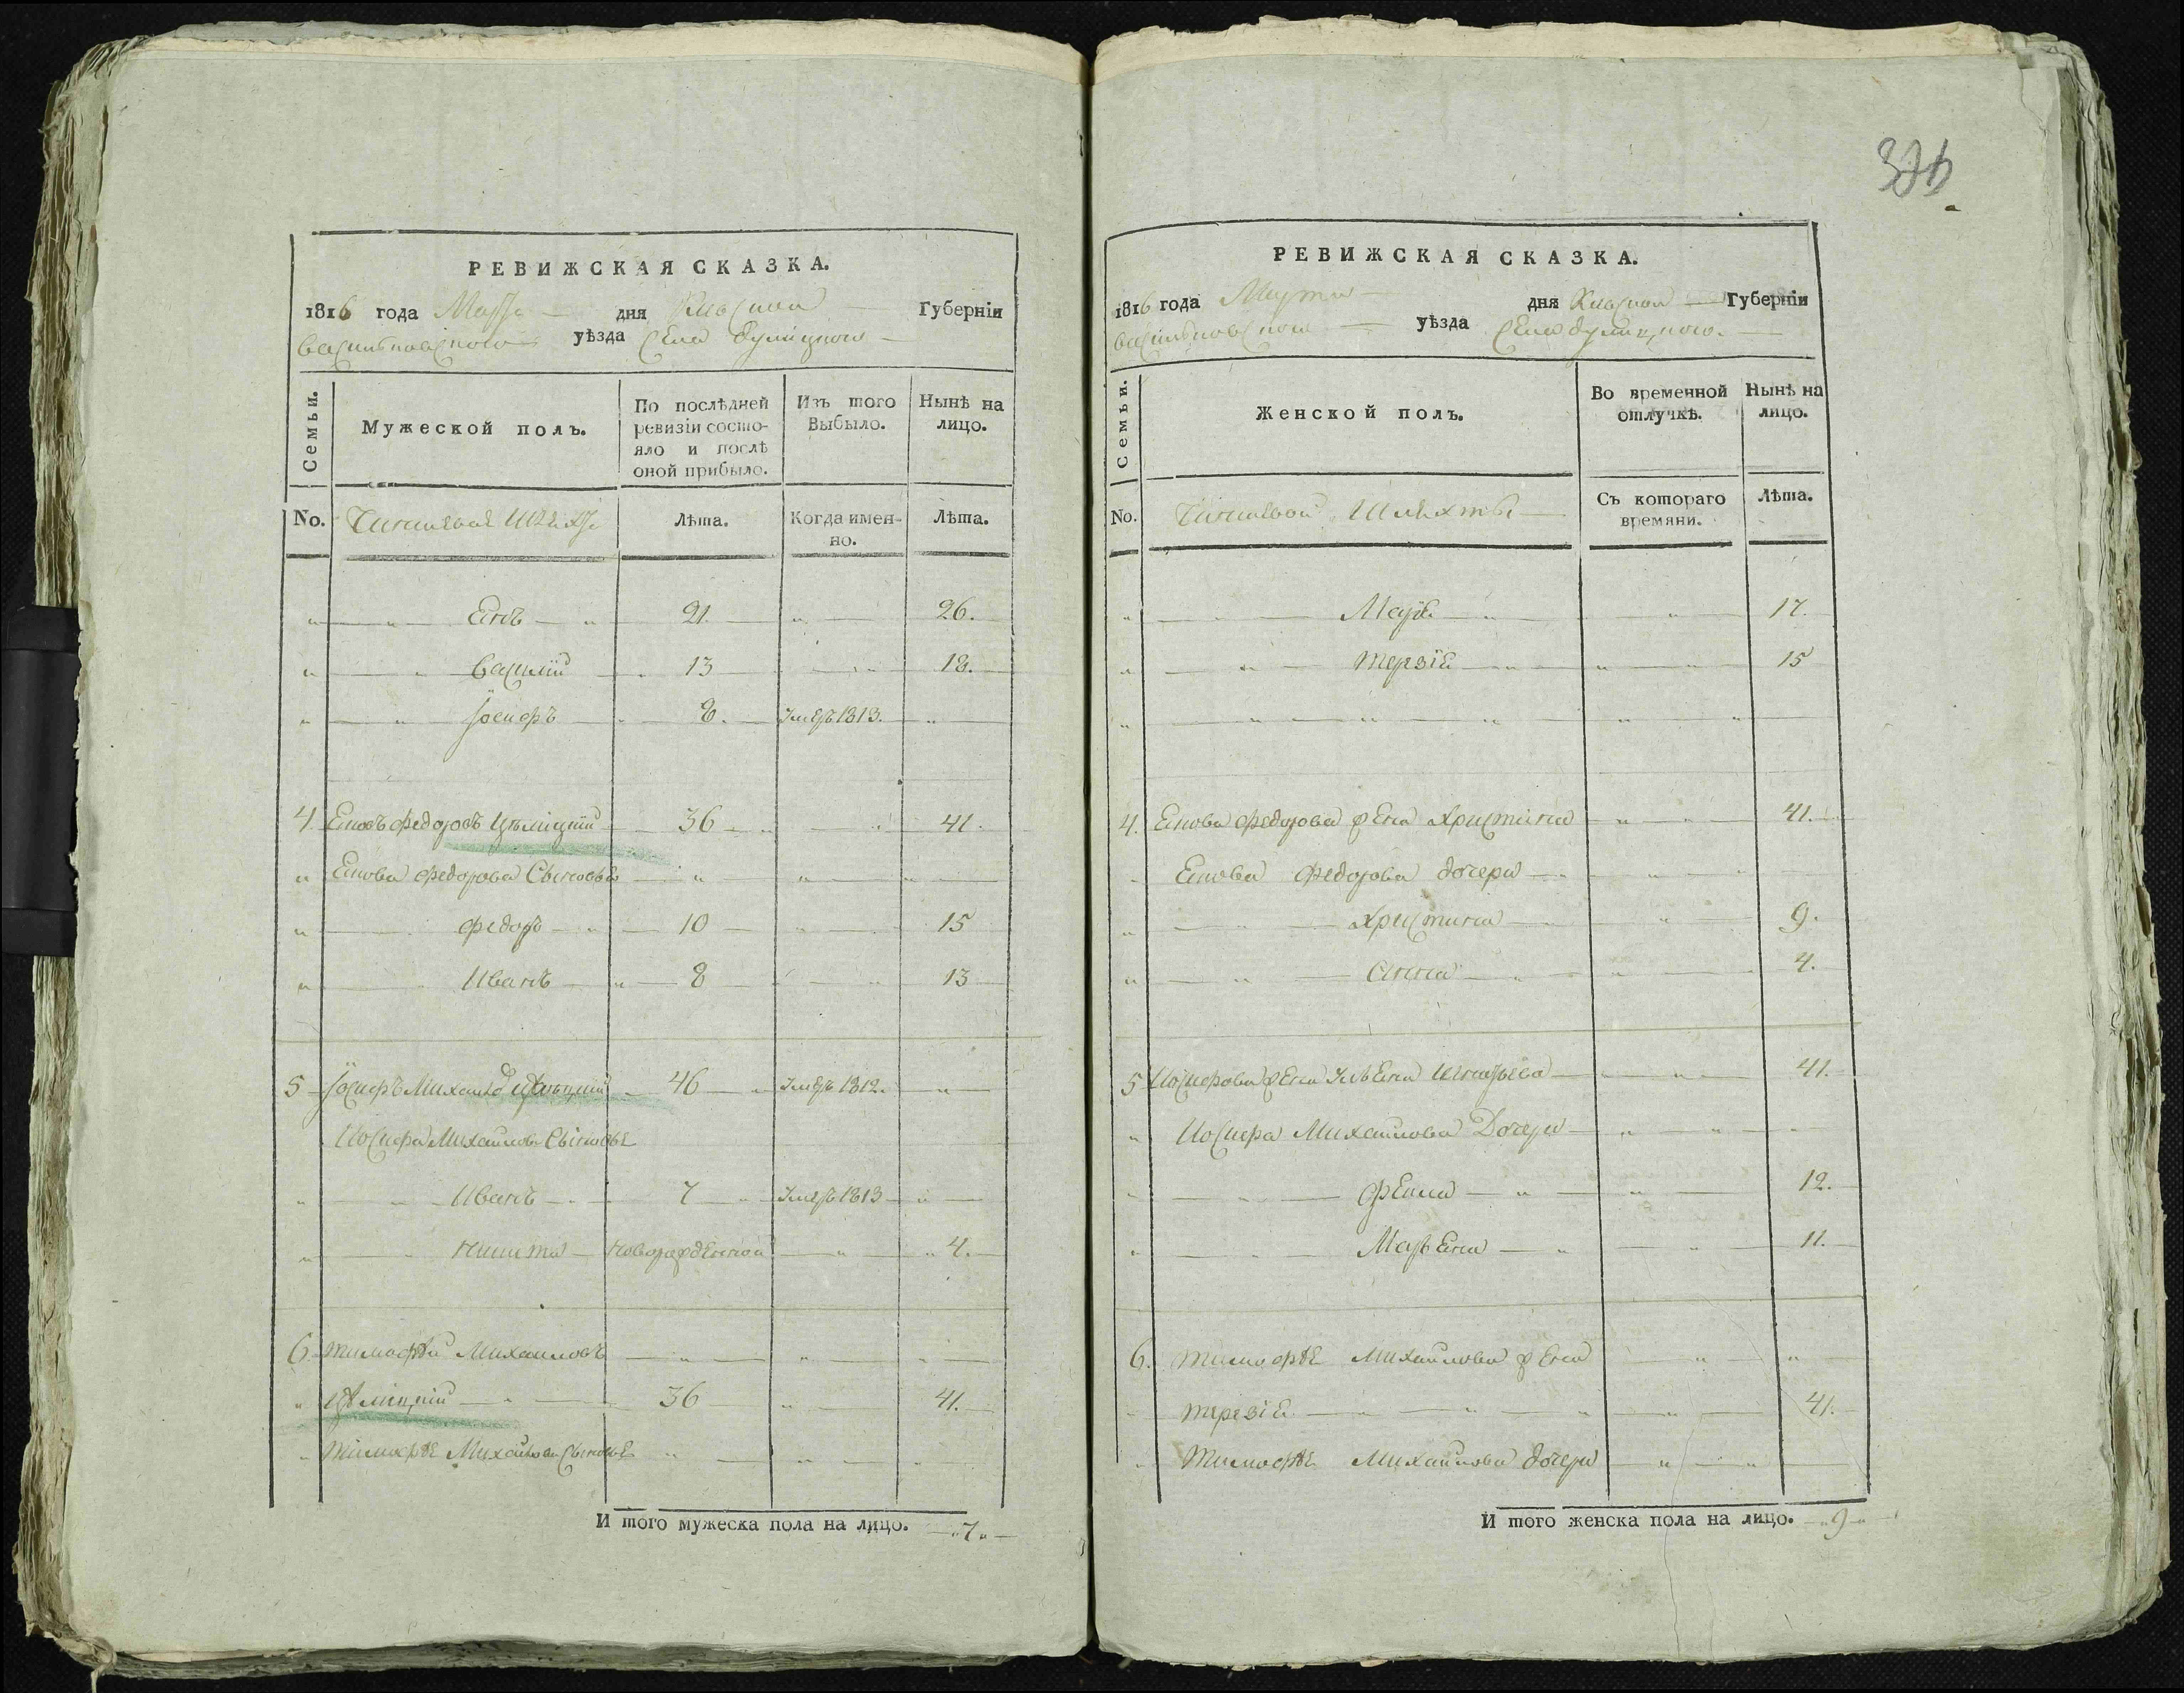 РЕВИЖСКАЯ СКАЗКА.
1816 года Марта дня Киевской Губерніи
Васильковского уѣзда Села Дулицкого
Семьи.
Мужеской полъ.
По послѣдней ревизіи состояло и послѣ оной прибыло.
Изъ того Выбыло.
Нынѣ на лицо.
No. Чиншевой Шляхты
Лѣта.
Когда именно.
Лѣта.
21. 26.
Василий 13 18.
Іосифъ 8. Умеръ 1813.
4. Яковъ Федоровъ 36 41.
Якова Федорова Сыновья
Федоръ 10 15
Иванъ 8 13
5 Іосифъ Михайловъ 46 Умеръ 1812.
Иосифа Михайлова Сыновье
Иванъ 7 Умеръ 1813
Никита новорожденной 4.
6. Тимофѣй Михайловъ
36 41.
Тимофѣя Михайлова Сыновье
И того мужеска пола на лицо. 7
РЕВИЖСКАЯ СКАЗКА.
1816 года Марта дня Киевской Губерніи
Васильковского уѣзда Села Дулицкого.
Семьи.
Женской полъ.
Во временной отлучкѣ.
Нынѣ на лицо.
No. Чиншевой Шляхты
Съ котораго времяни.
Лѣта.
17.
Терезія 15
4. Якова Федорова жена Христина 41.
Якова Федорова дочери
Христина 9.
Анна 4.
5 Иосифова жена 41.
Иосифа Михайлова Дочери
12.
Марьяна 11.
6. Тимофѣя Михайлова жена
Терезія 41.
Тимофѣя Михайлова дочери
И того женска пола на лицо. 9